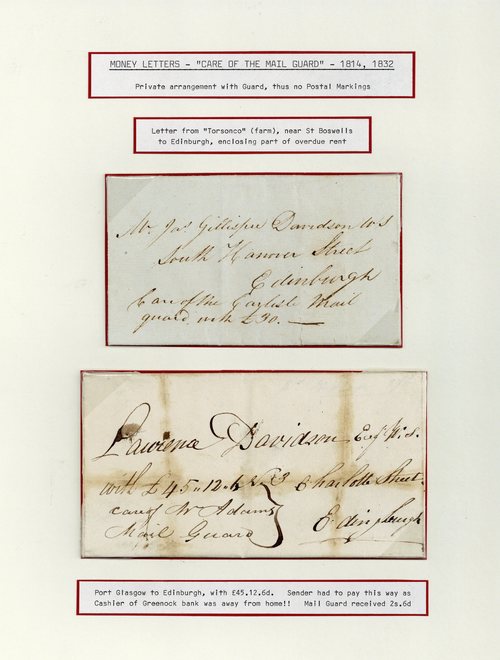 MONEY LETTERS - "CARE OF THE MAIL GUARD" - 1814, 1832
Private arrangement with Guard, thus no Postal Markings
Letter from "Torsonce" (farm), near St Boswells
to Edinburgh, enclosing part of overdue rent
Mr Jas Gillispie Davidson WS
South Hanover Street
Edinburgh
Care of the Carlisle Mail
guard with £30. —
Lawrence Davidson Esqr W.S.
with £45,,12,,6 No 3 Charlotte Street
care of Mr Adams
Mail Guard
Edinburgh
Port Glasgow to Edinburgh, with £45.12.6d. Sender had to pay this way as
Cashier of Greenock bank was away from home!! Mail Guard received 2s.6d